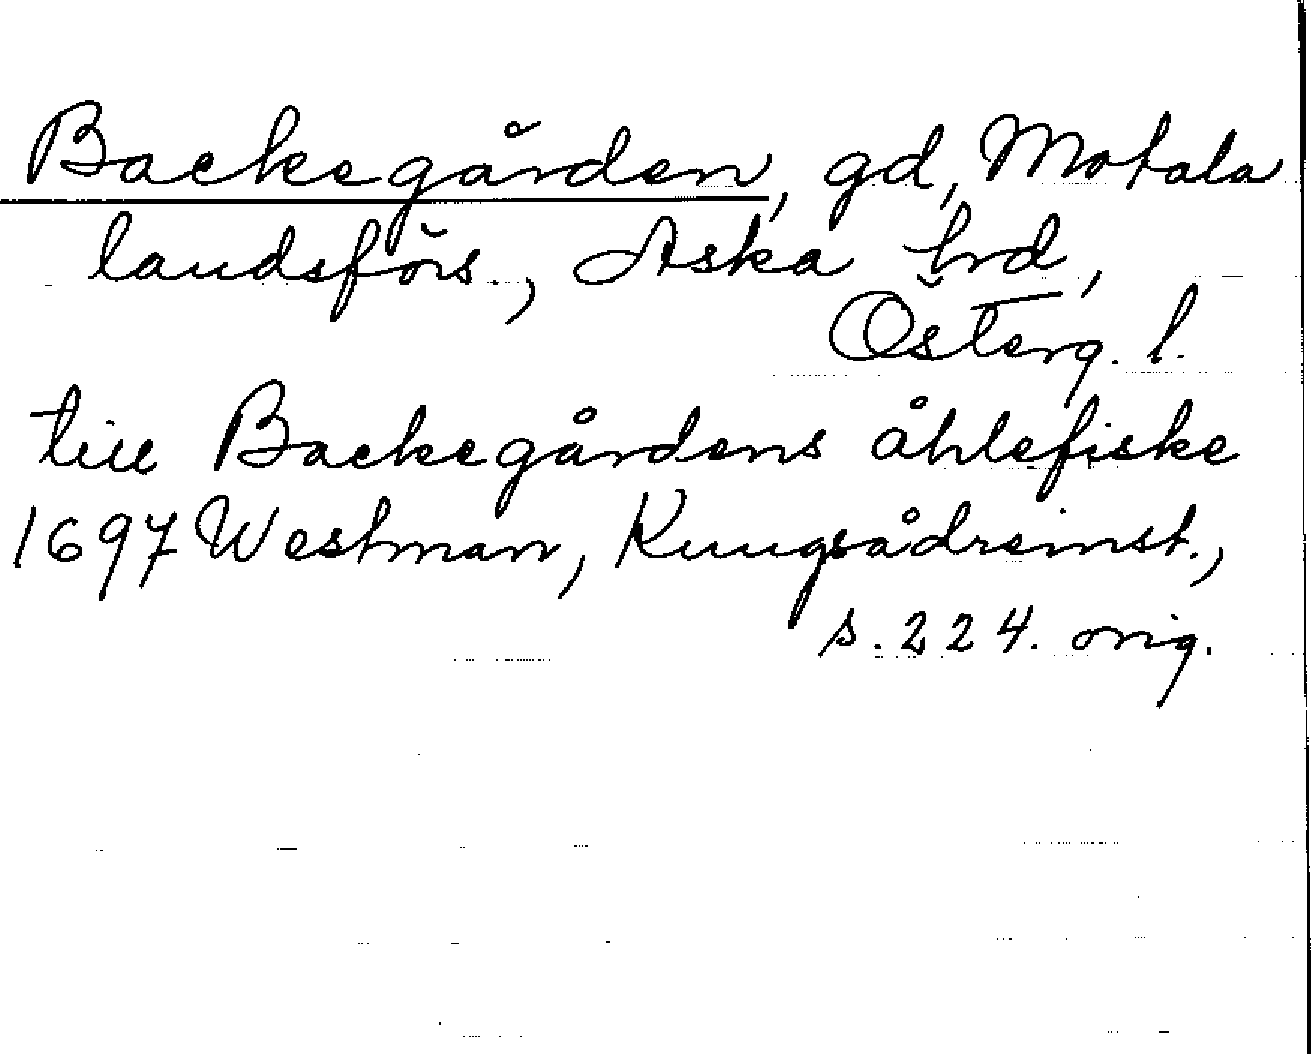 Backegården, gd, Motala
landsförs., Aska hrd,
Österg. l.
till Backegårdens åhlefiske
1697 Westman, Kungsådreinst.,
s. 224. orig.